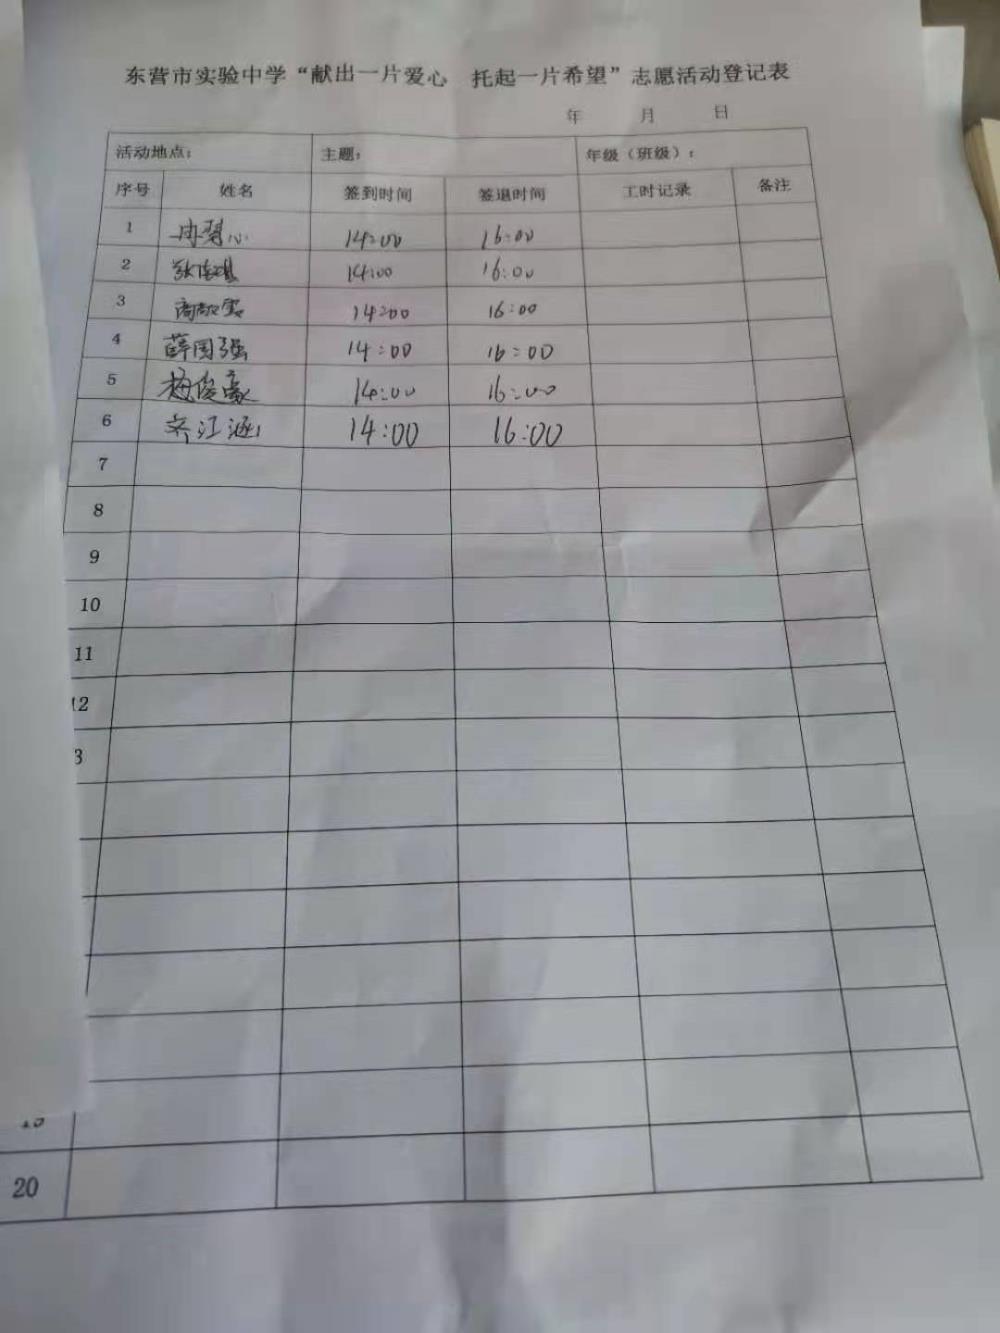 东营市实验中学“献出一片爱心 托起一片希望”志愿活动登记表
年 月 日
活动地点： 主题： 年级（班级）：
序号 姓名 签到时间 签退时间 工时记录 备注
1 冉碧心 14:00 16:00
2 14:00 16:00
3 14:00 16:00
4 薛国强 14:00 16:00
5 梅俊豪 14:00 16:00
6 齐江涵 14:00 16:00
7
8
9
10
11
12
3
20